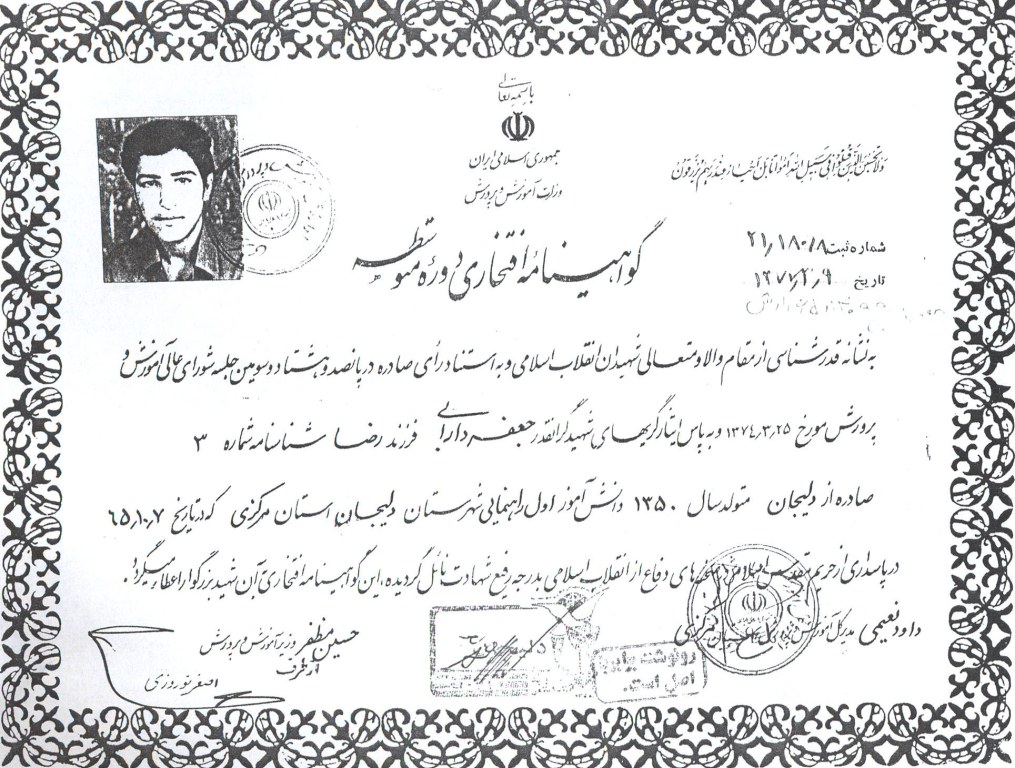 باسمه تعالی
جمهوری اسلامی ایران
وزارت آموزش و پرورش
ولا تحسبن الذین قتلوا فی سبیل الله امواتا بل احیاء عند ربهم یرزقون
گواهینامهٔ افتخاری دوره متوسطه
شماره ثبت ۲۱٫۱۸۰/۸
تاریخ ۱۳۷۷٫۲٫۹
به نشانه قدرشناسی از مقام والا و متعالی شهیدان انقلاب اسلامی و به استناد رأی صادره در پانصد و هشتاد و سومین جلسه شورای عالی آموزش و
پرورش مورخ ۱۳۷۴٫۳٫۲۵ و به پاس ایثارگریهای شهید گرانقدر جعفر دارابی فرزند رضا شناسنامه شماره ۳
صادره از دلیجان متولد سال ۱۳۵۰ دانش آموز اول راهنمایی شهرستان دلیجان استان مرکزی که در تاریخ ۶۵٫۱۰٫۷
در پاسداری از حریم مقدس اسلام و دفاع از انقلاب اسلامی بدرجه رفیع شهادت نائل گردیده، این گواهینامه افتخاری آن شهید بزرگوار اعطاء میگردد.
داود نعیمی مدیر کل آموزش و پرورش استان مرکزی
حسین مظفر وزیر آموزش و پرورش
از طرف
اصغر نوروزی
رونوشت برابر
اصل است.